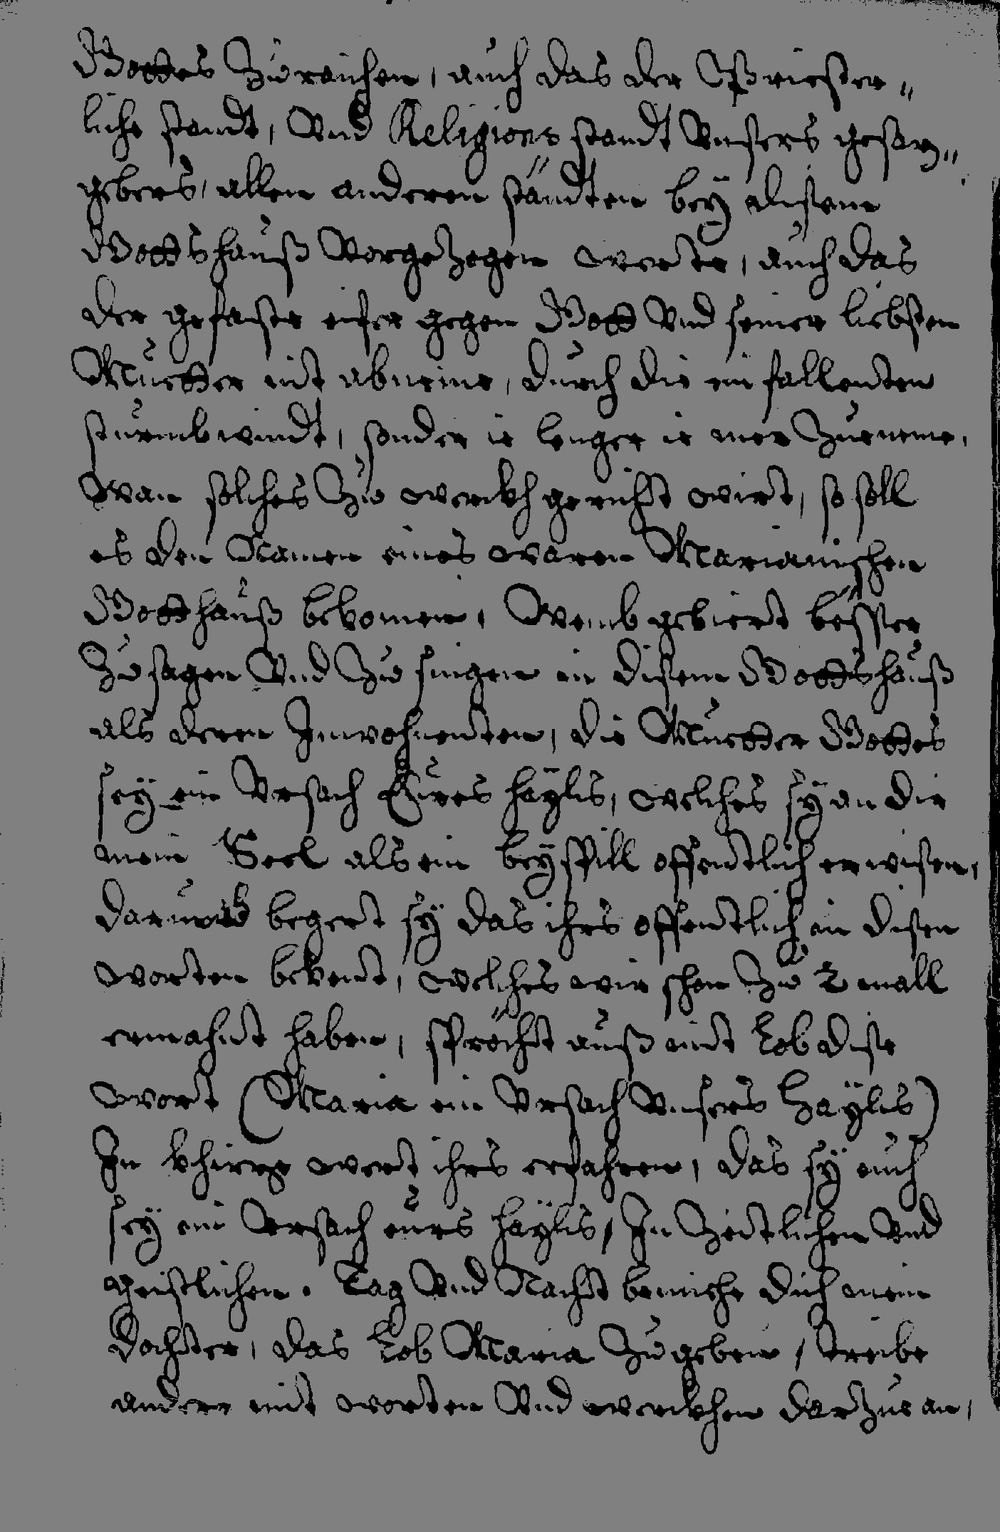 Gottes Zuraichen, auch das der Priester„
liche standt, Vnd Religions standt Vnsers gesaz„
gebers, allen anderen ständten bey disem
Gottshauß Vorgezogen werde, auch das
der gefaste eifer gegen Gott Vnd seiner liebsten
Muetter nit abneme, durch die ein fallenten
sturmbwindt, sonder ie lenger ie mer Zueneme,
Wan solches Zu werckh gericht wirt, so soll
es den Namen eines waren Marianischen
Gotthauß bekomen, Wemb gebiert besser
Zu sagen Vnd Zu singen in disem Gottshauß
als deren Inwohnenten, die Muetter Gottes
sey ein Vrsach Eures haÿls, welches sÿ an dir
mein Seel als ein beÿspill offentlich erwisen,
darumb begert sÿ das ihrs offentlich in disen
worten bekent, welches wir schon Zu 2 mall
ermahnt haben, sprächt auß mit Lob dise
wort (Maria ein Vrsach Vnsers Haÿls)
In khirze wert ihrs erfahren, das sÿ euch
seÿ ein Vrsach eurs haÿls, In Zeitlichen Vnd
geistlichen. Tag Vnd Nacht bemiehe dich mein
dochter, das Lob Maria Zu geben, treibe
andere mit worten Vnd werckhen darzue an,